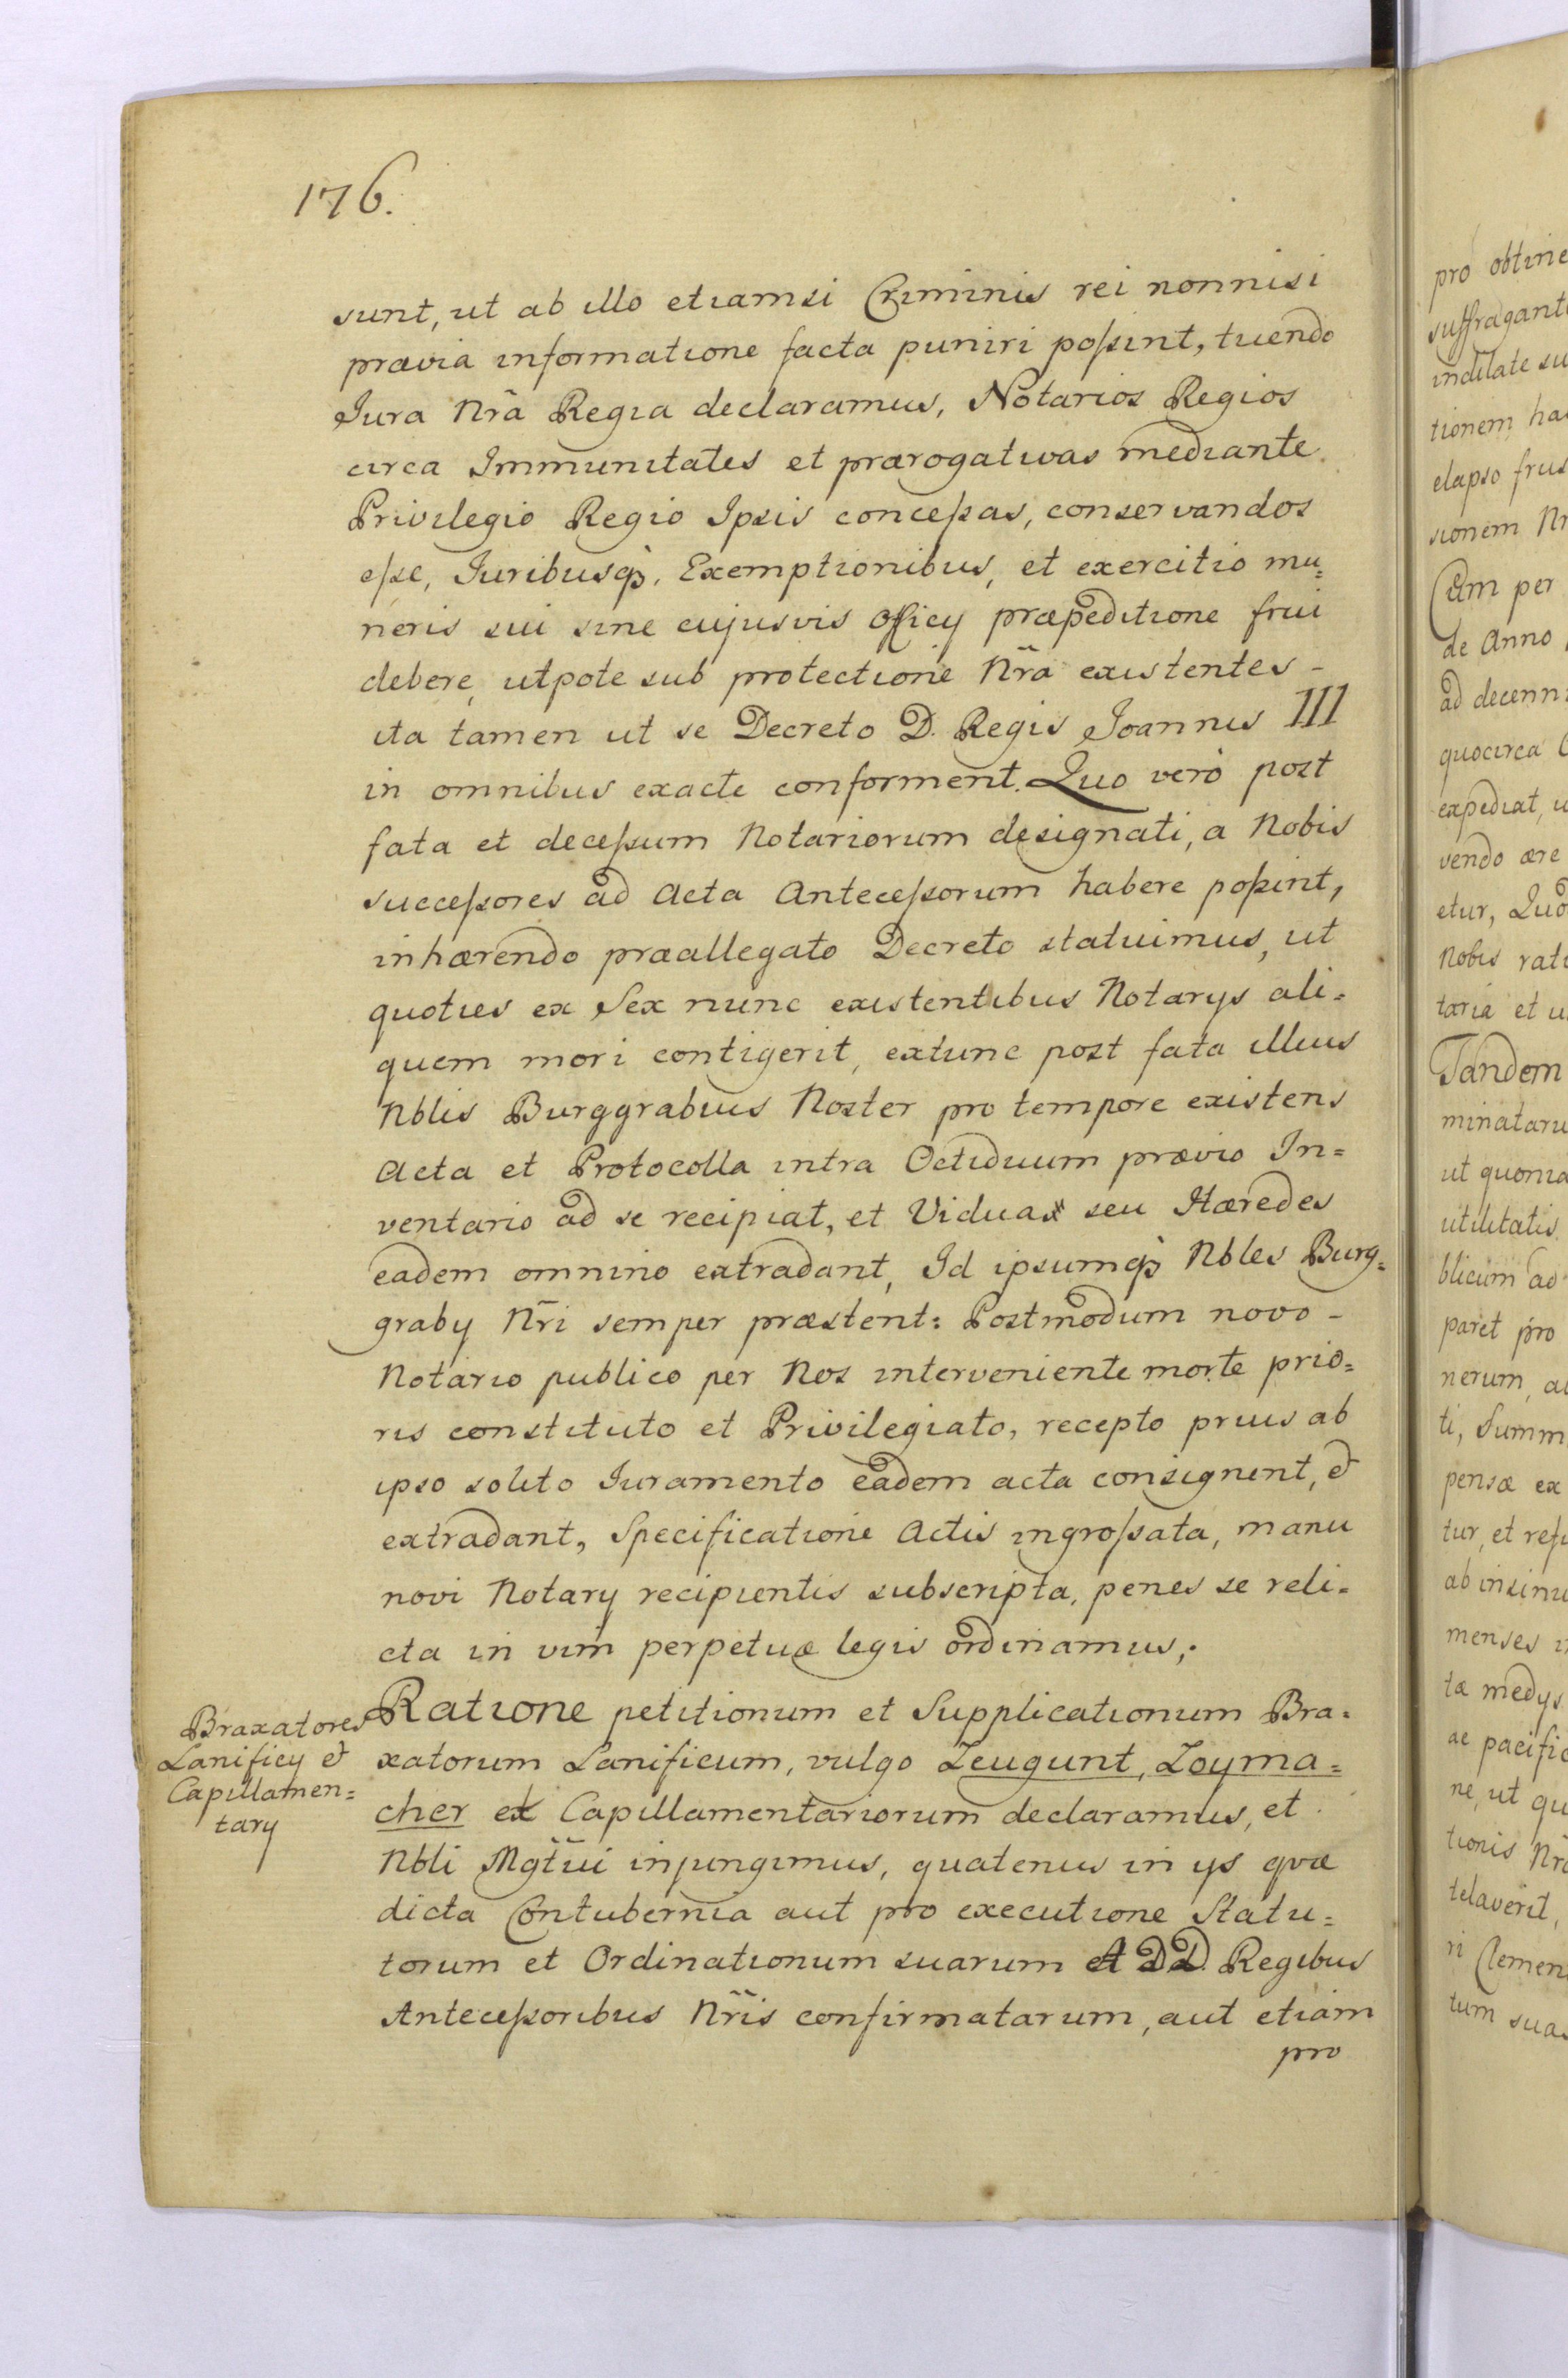 176.
sunt, ut ab illo etiamsi Criminis rei nonnisi
prævia informatione facta puniri poſsint, tuendo
Jura Nr̃a Regia declaramus, Notarios Regios
circa Immunitates et prærogativas mediante
Privilegio Regio Ipsis conceſsas, conservandos
eſse, Juribusq̃, Exemptionibus, et exercitio mu=
neris sui sine cujusvis Officy præpeditione frui
debere, utpote sub protectione Nr̃a existentes -
ita tamen ut se Decreto D. Regis Joannis III
in omnibus exacte conforment. Quo verò post
fata et deceſsum Notariorum designati, a Nobis
succeſsores ad Acta Anteceſsorum habere poſsint,
inhærendo præallegato Decreto statuimus, ut
quoties ex Sex nunc existentibus Notarys ali=
quem mori contigerit, extunc post fata illius
Nblis Burggrabius Noster pro tempore existens
Acta et Protocolla intra Octiduum prævio In=
ventario ad se recipiat, et Viduæ seu Hæredes
eadem omnino extradant, Id ipsumq̃ Nbles Burg=
graby Nr̃i semper præstent: Postmodum novo -
Notario publico per Nos interveniente morte prio=
ris constituto et Privilegiato, recepto prius ab
ipso solito Juramento eadem acta consignent, &
extradant, Specificatione Actis ingroſsata, manu
novi Notary recipientis subscripta, penes se reli=
cta in vim perpetuæ legis ordinamus;
Braxatores
Lanificy &
Capillamen=
tary
Ratione petitionum et Supplicationum Bra=
xatorum Lanificum, vulgo Zeugunt, Zoyma=
cher et Capillamentariorum declaramus, et
Nbli Mgt̃ui injungimus, quatenus in ys quæ
dicta Contubernia aut pro executione Statu=
torum et Ordinationum suarum A DD. Regibus
Anteceſsoribus Nr̃is confirmatarum, aut etiam
pro
pro obtine
suffragant
indilate su
tionem ha
elapso frus
sionem Nr
Cum per
de Anno
ad decenn
quocirca
expediat, u
vendo ære
etur, Quo
Nobis rat
taria et u
Tandem
minataru
ut quonia
utilitatis
blicum ad
paret pro
nerum, a
ti, Summ
pensæ ex
tur, et refu
ab insinu
menses i
ta medys
ac pacific
ne, ut qu
tionis Nr
telaverit,
ri Clemen
tum suas